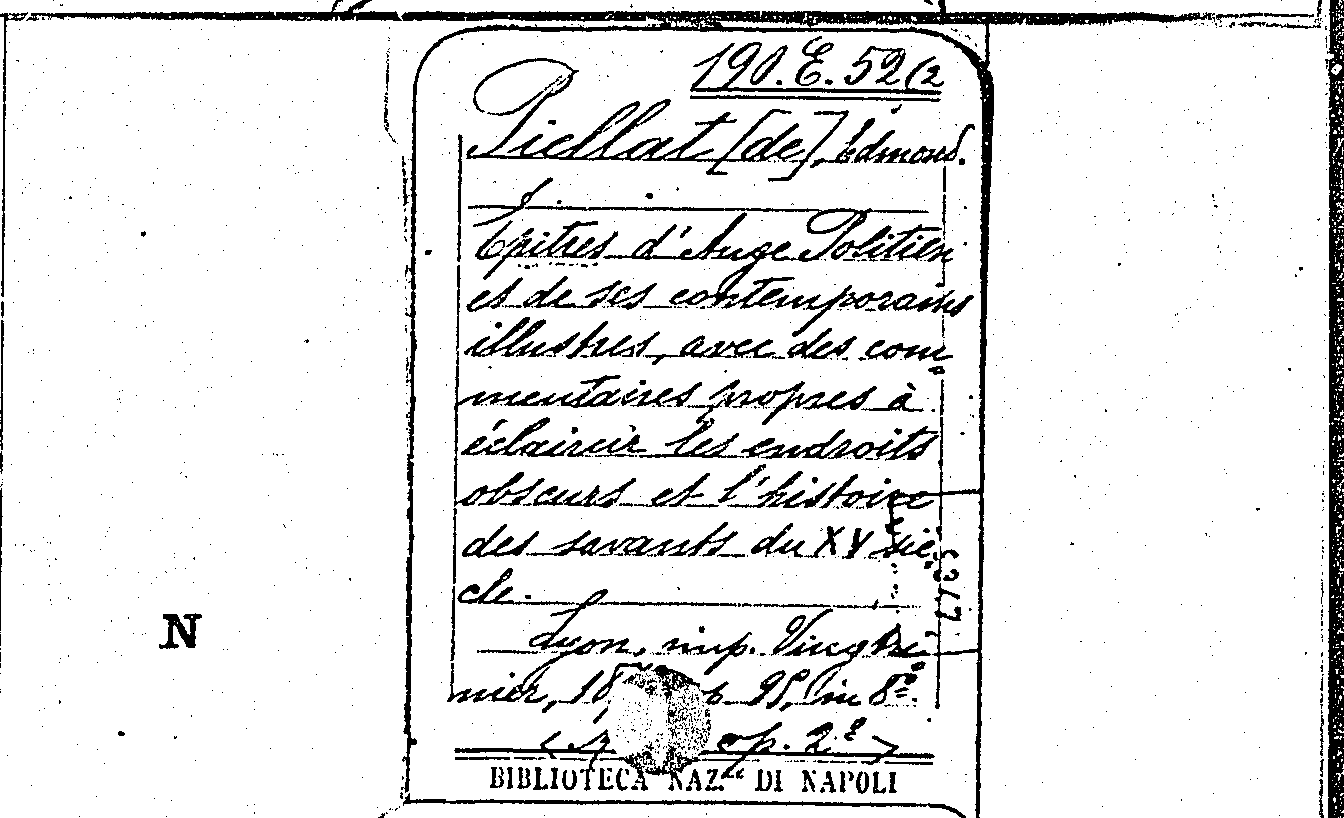 190. E. 52 (2
Piellat [de], Edmond.
Epitres d'Ange Politien
et de ses contemporains
illustres, avec des com
mentaires propres à
éclaircir les endroits
obscurs et l'histoire
des savants du XV siè
cle.
Lyon, imp. Vingtri
nier, 95, in 8º.
cop. 2ª)
BIBLIOTECA NAZ. DI NAPOLI
N